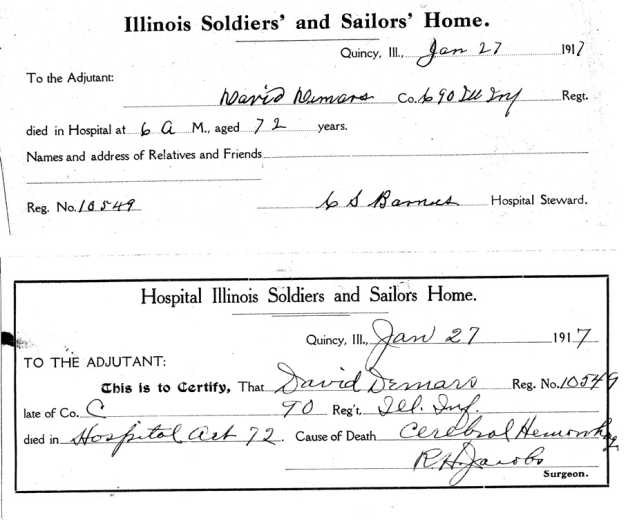 Illinois Soldiers' and Sailors' Home.
Quincy, Ill., Jan 27 1917
To the Adjutant:
David Demars Co. C 90 Ill Inf Regt.
died in Hospital at 6 A M., aged 72 years.
Names and address of Relatives and Friends
Reg. No. 10549 C S Barnes Hospital Steward.
Hospital Illinois Soldiers and Sailors Home.
Quincy, Ill., Jan 27 1917
TO THE ADJUTANT:
This is to Certify, That David Demars Reg. No. 10549
late of Co. C 90 Reg't. Ill. Inf.
died in Hospital 72. Cause of Death Cerebral Hemorrhag
R. H. Jacobs
Surgeon.